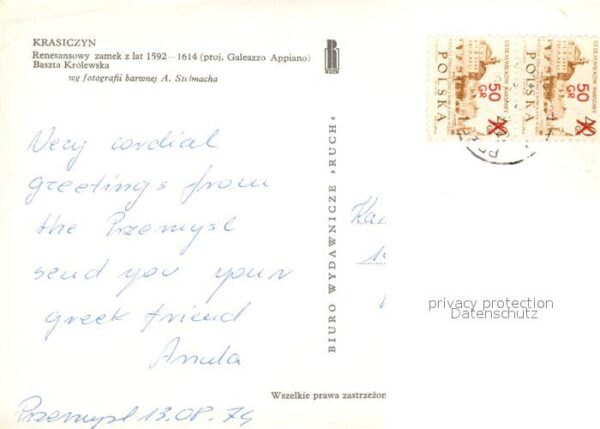 KRASICZYN
Renesansowy zamek z lat 1592–1614 (proj. Galeazzo Appiano)
Baszta Królewska
wg fotografii barwnej A. Stelmacha
RUCH
BIURO WYDAWNICZE „RUCH”
Very cordial
greetings from
the Przemysl
send you your
greek friend
Anula
Przemyśl 13.08.74
Wszelkie prawa zastrzeżon
POLSKA
50
GR
40
POLSKA
50
GR
40
Ka
privacy protection
Datenschutz